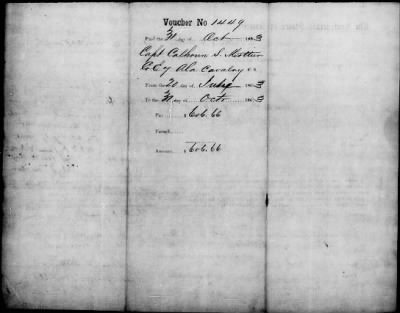 Voucher No 1449
Paid the 31 day of Oct 1863
Capt Calhoun S.
Co E 7 Ala Cavalry C S
From the 20 day of July 1863
To the 31 day of Octo 1863
Pay $ 606.66
Forage
Amount $ 606.66